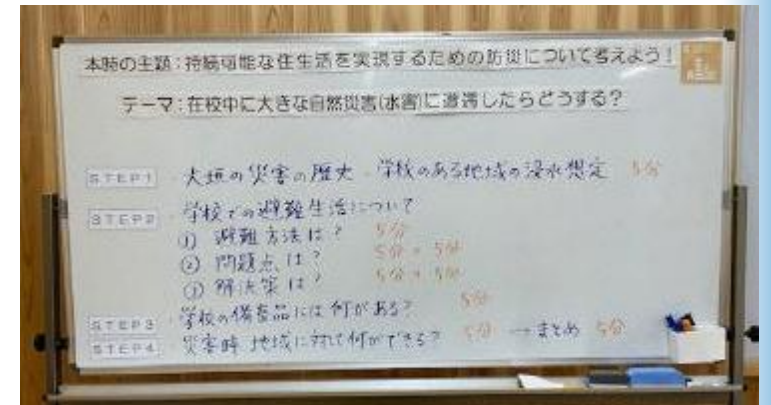 本時の主題：持続可能な住生活を実現するための防災について考えよう！
テーマ：在校中に大きな自然災害(水害)に遭遇したらどうする？
STEP1 ・大垣の災害の歴史・学校のある地域の浸水想定 5分
STEP2 ・学校での避難生活について
① 避難方法は？ 5分
② 問題点は？ 5分＋5分
③ 解決策は？ 5分＋5分
STEP3 ・学校の備蓄品には何がある？ 5分
STEP4 災害時 地域に対して何ができる？ 5分 →まとめ 5分